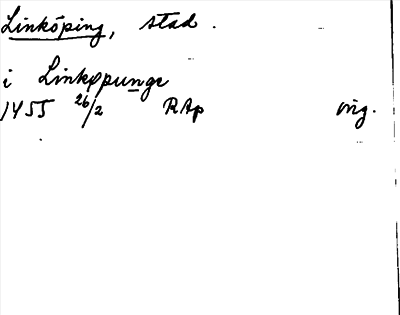 Linköping, stad.
i Linkøpunge
1455 26/2 RAp orig.